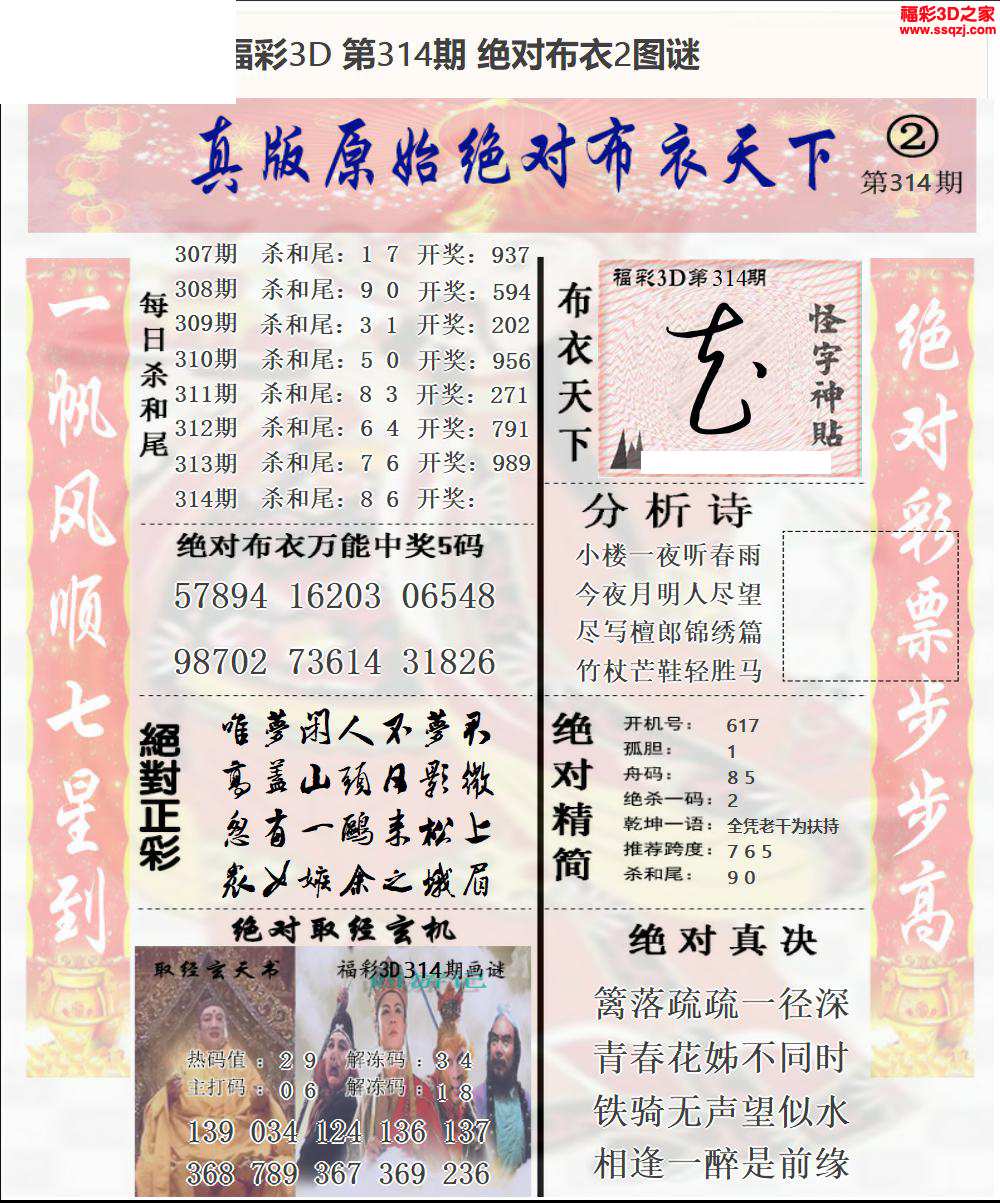 福彩3D之家
www.ssqzj.com
福彩3D 第314期 绝对布衣2图谜
真版原始绝对布衣天下
②
第314期
一帆风顺七星到
每日杀和尾
307期 杀和尾：1 7 开奖：937
308期 杀和尾：9 0 开奖：594
309期 杀和尾：3 1 开奖：202
310期 杀和尾：5 0 开奖：956
311期 杀和尾：8 3 开奖：271
312期 杀和尾：6 4 开奖：791
313期 杀和尾：7 6 开奖：989
314期 杀和尾：8 6 开奖：
绝对布衣万能中奖5码
57894 16203 06548
98702 73614 31826
絕對正彩
唯夢闲人不夢君
高盖山頭月影微
忽有一鷗来松上
众女嫉余之蛾眉
绝对取经玄机
取经玄天书
福彩3D314期画谜
热码值：2 9 解冻码：3 4
主打码：0 6 解冻码：1 8
139 034 124 136 137
368 789 367 369 236
布衣天下
福彩3D第314期
怪字神貼
分析诗
小楼一夜听春雨
今夜月明人尽望
尽写檀郎锦绣篇
竹杖芒鞋轻胜马
绝对精简
开机号：617
孤胆：1
舟码：8 5
绝杀一码：2
乾坤一语：全凭老干为扶持
推荐跨度：7 6 5
杀和尾：9 0
绝对真决
篱落疏疏一径深
青春花姊不同时
铁骑无声望似水
相逢一醉是前缘
绝对彩票步步高